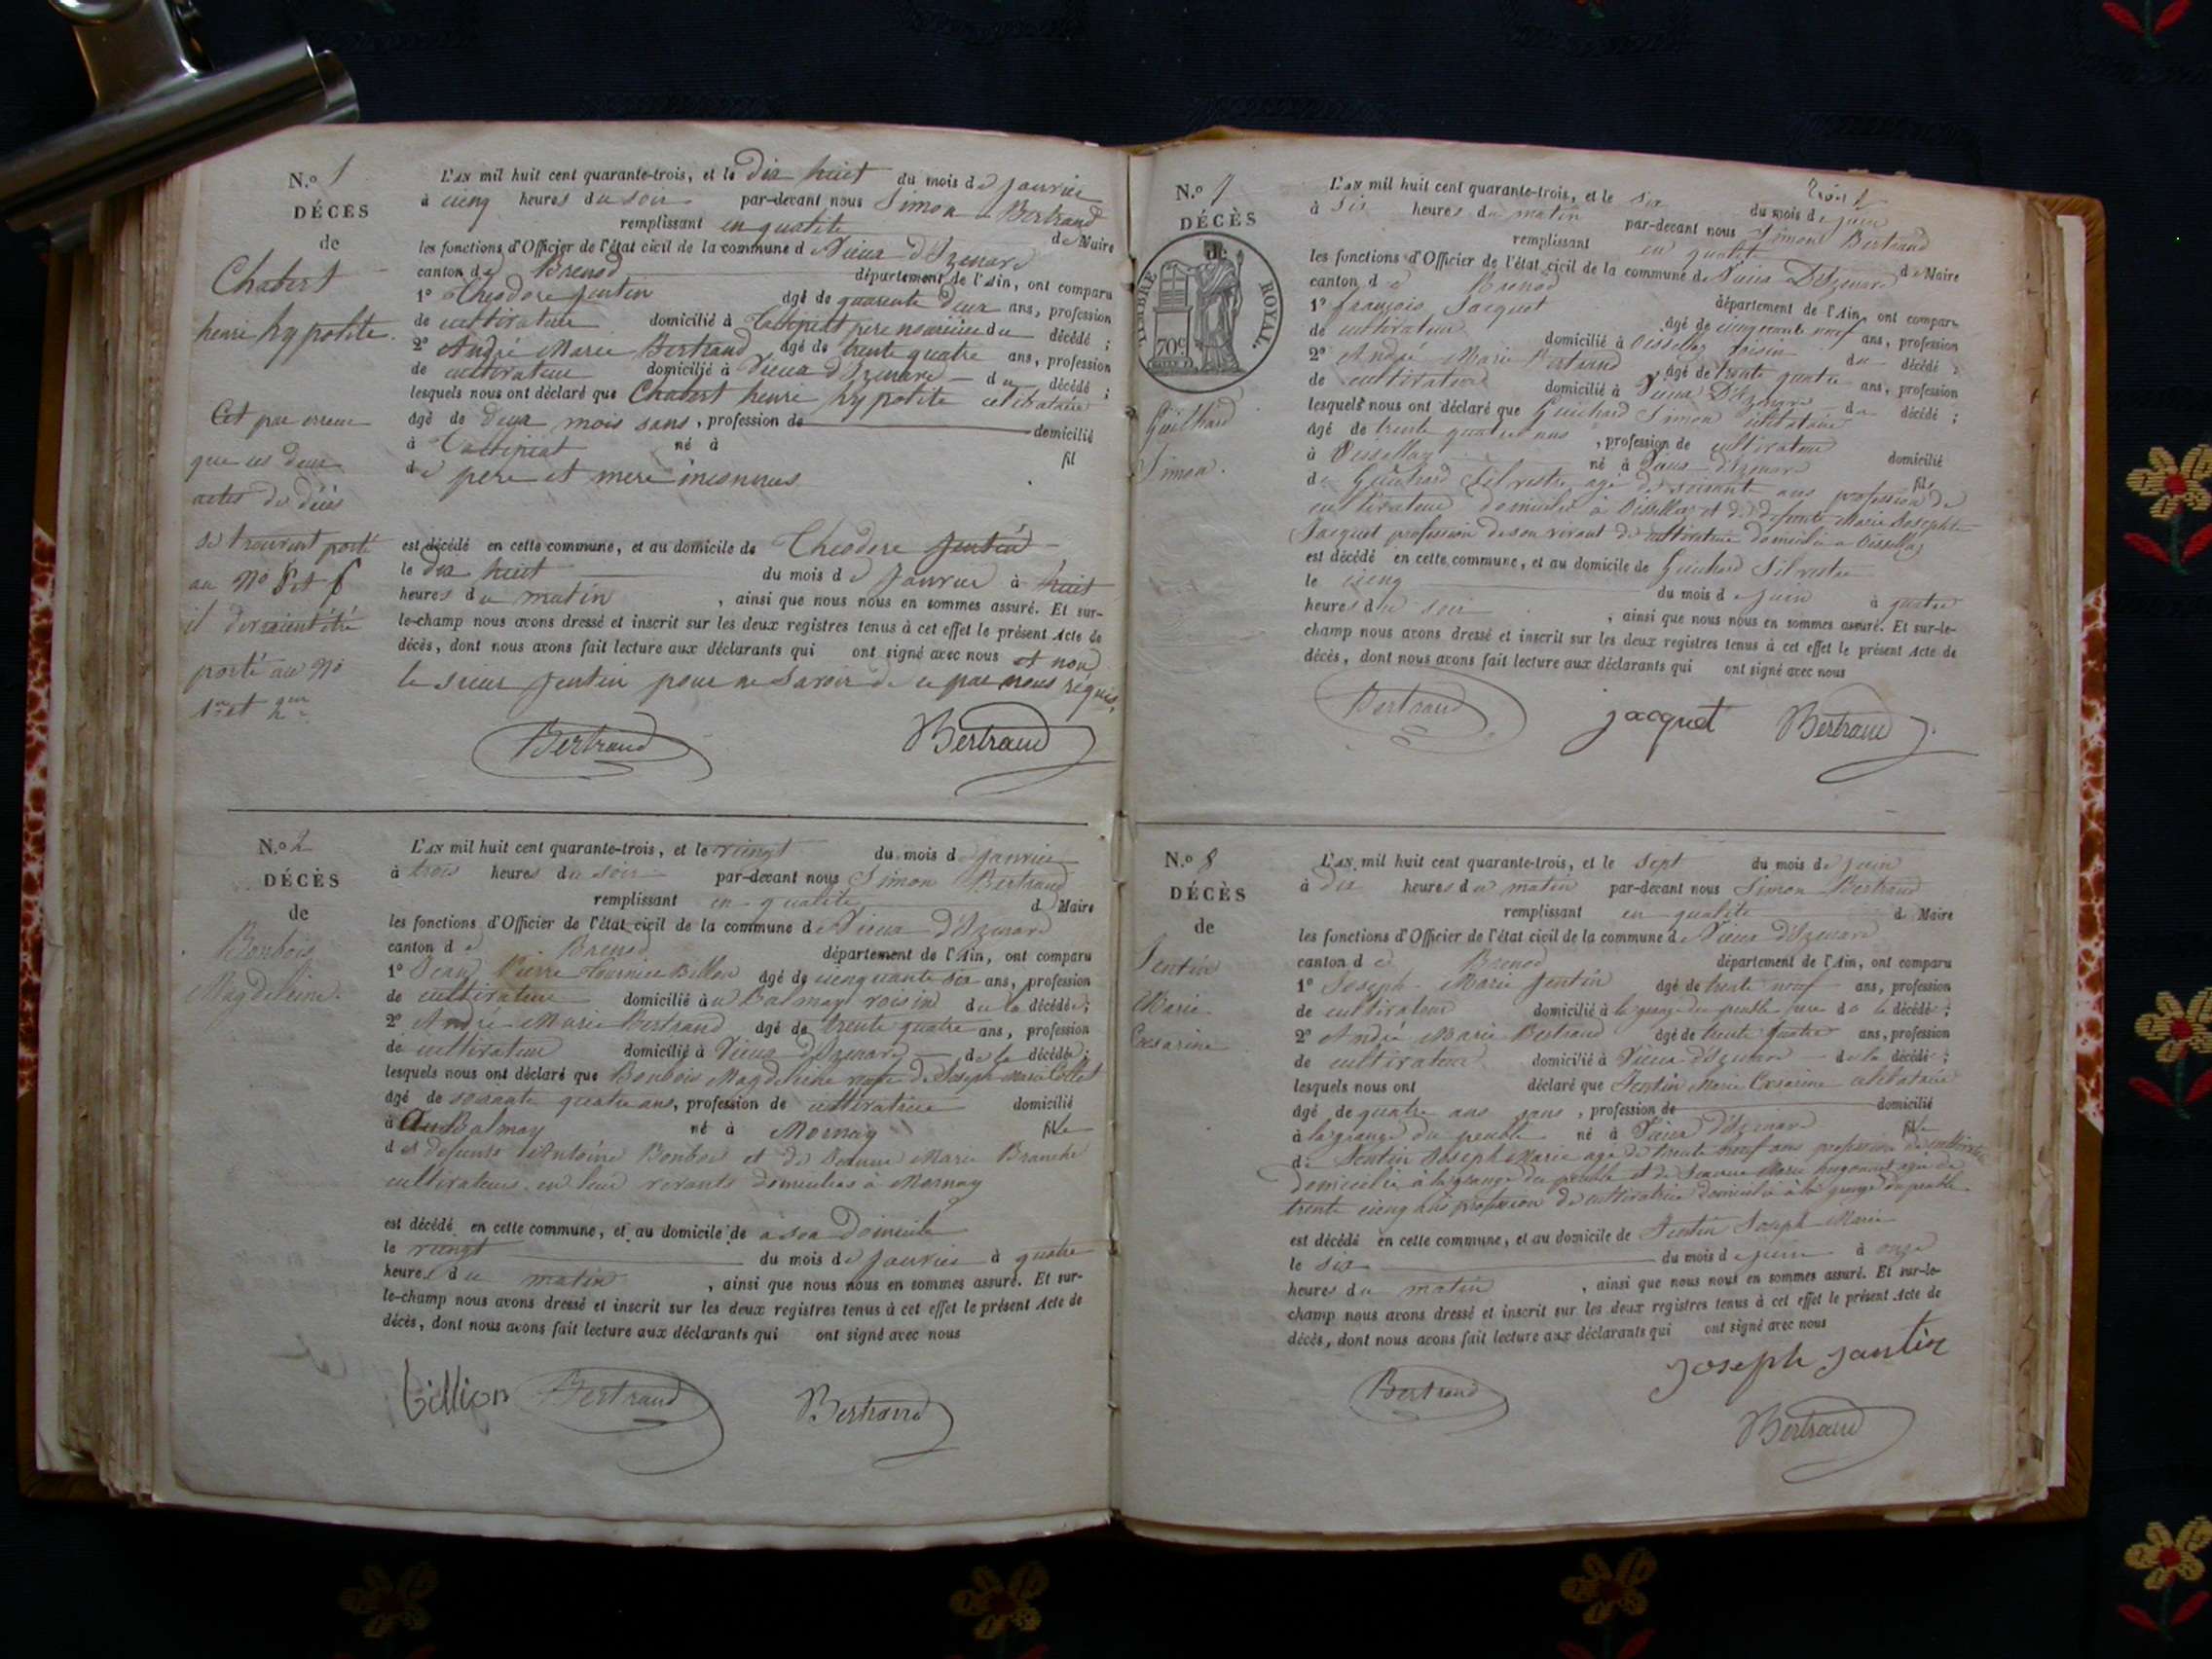 N.o 1
DÉCÈS
de
Chabert
henri hypolite.
Cet par erreur
que ces deux
actes de décès
se trouvent porté
au No 5 et 6
il devraient être
porté au No
1er et 2me
L'AN mil huit cent quarante-trois, et le dix huit du mois de janvier
à cinq heures du soir par-devant nous Simon Bertrand
remplissant en qualité de Maire
les fonctions d'Officier de l'état civil de la commune de Vieux d'Izenave
canton de Brenod département de l'Ain, ont comparu
1o Theodore Jentin âgé de quarente deux ans, profession
de cultivateur domicilié à père nourricier du décédé ;
2o André Marie Bertrand âgé de trente quatre ans, profession
de cultivateur domicilié à Vieux d'Izenave du décédé ;
lesquels nous ont déclaré que Chabert henri hypolite celibataire
âgé de deux mois sans, profession de domicilié
à né à fil
de pere et mere inconnus
est décédé en cette commune, et au domicile de Theodore Jentin
le dix huit du mois de Janvier à huit
heures du matin, ainsi que nous nous en sommes assuré. Et sur-
le-champ nous avons dressé et inscrit sur les deux registres tenus à cet effet le présent Acte de
décès, dont nous avons fait lecture aux déclarants qui ont signé avec nous et non
le sieur Jentin pour ne savoir de ce par nous requis,
Bertrand Bertrand
N.o 2
DÉCÈS
de
Bonbois
Magdeleine.
L'AN mil huit cent quarante-trois, et le vingt du mois de janvier
à trois heures du soir par-devant nous Simon Bertrand
remplissant en qualité d Maire
les fonctions d'Officier de l'état civil de la commune de Vieux d'Izenave
canton de Brenod département de l'Ain, ont comparu
1o Jean Pierre âgé de cinquante six ans, profession
de cultivateur domicilié au Balmay voisin de la décédée;
2o André Marie Bertrand âgé de trente quatre ans, profession
de cultivateur domicilié à Vieux d'Izenave de la décédée;
lesquels nous ont déclaré que Bonbois Magdeleine de Joseph Marie Collet
âgé de soixante quatre ans, profession de cultivatrice domicilié
à Au Balmay né à Mornay fille
des defunts Antoine Bonbois et de Jeanne Marie Branche
cultivateurs en leur vivants domicilies à Mornay
est décédé en cette commune, et au domicile de à son Domicile
le vingt du mois de janvier à quatre
heures du matin, ainsi que nous nous en sommes assuré. Et sur-
le-champ nous avons dressé et inscrit sur les deux registres tenus à cet effet le présent Acte de
décès, dont nous avons fait lecture aux déclarants qui ont signé avec nous
Billion Bertrand Bertrand
N.o 7
DÉCÈS
de
TIMBRE ROYAL.
70c
Guichard
Simon.
L'AN mil huit cent quarante-trois, et le six du mois de juin
à six heures du matin par-devant nous Simon Bertrand
remplissant en qualité de Maire
les fonctions d'Officier de l'état civil de la commune de Vieux D'Izenave
canton de Brenod département de l'Ain, ont comparu
1o françois Jacquet âgé de cinquante neuf ans, profession
de cultivateur domicilié à Oisselas voisin du décédé ;
2o André Marie Bertrand âgé de trente quatre ans, profession
de cultivateur domicilié à Vieux D'Izenave du décédé ;
lesquels nous ont déclaré que Guichard Simon celibataire
âgé de trente quatre ans, profession de cultivateur domicilié
à Oisselas né à Vieux d'Izenave fils
de Guichard Silvestre agé de soixante ans profession de
cultivateur domicilié à Oisselas et de defunte Marie Josephte
Jacquet profession de son vivant de cultivateur domicilié à Oisselas
est décédé en cette commune, et au domicile de Guichard Silvestre
le cinq du mois de juin à quatre
heures du soir, ainsi que nous nous en sommes assuré. Et sur-le-
champ nous avons dressé et inscrit sur les deux registres tenus à cet effet le présent Acte de
décès, dont nous avons fait lecture aux déclarants qui ont signé avec nous
Bertrand jacquet Bertrand
N.o 8
DÉCÈS
de
Jentin
Marie
Cesarine
L'AN mil huit cent quarante-trois, et le sept du mois de juin
à dix heures du matin par-devant nous Simon Bertrand
remplissant en qualité d Maire
les fonctions d'Officier de l'état civil de la commune de Vieux d'Izenave
canton de Brenod département de l'Ain, ont comparu
1o Joseph Marie Jentin âgé de trente neuf ans, profession
de cultivateur domicilié à la grange du peuble pere de la décédée;
2o André Marie Bertrand âgé de trente quatre ans, profession
de cultivateur domicilié à Vieux d'Izenave de la décédée;
lesquels nous ont déclaré que Jentin Marie Cesarine celibataire
âgé de quatre ans sans, profession de domicilié
à la grange du peuble né à Vieux d'Izenave fille
de Jentin Joseph Marie agé de trente neuf ans profession de cultivateur
domicilié à la grange du peuble et de Jeanne Marie agée de
trente cinq ans profession de cultivatrice domicilié à la grange du peuble
est décédé en cette commune, et au domicile de Jentin Joseph Marie
le six du mois de juin à onze
heures du matin, ainsi que nous nous en sommes assuré. Et sur-le-
champ nous avons dressé et inscrit sur les deux registres tenus à cet effet le présent Acte de
décès, dont nous avons fait lecture aux déclarants qui ont signé avec nous
joseph jantin
Bertrand
Bertrand